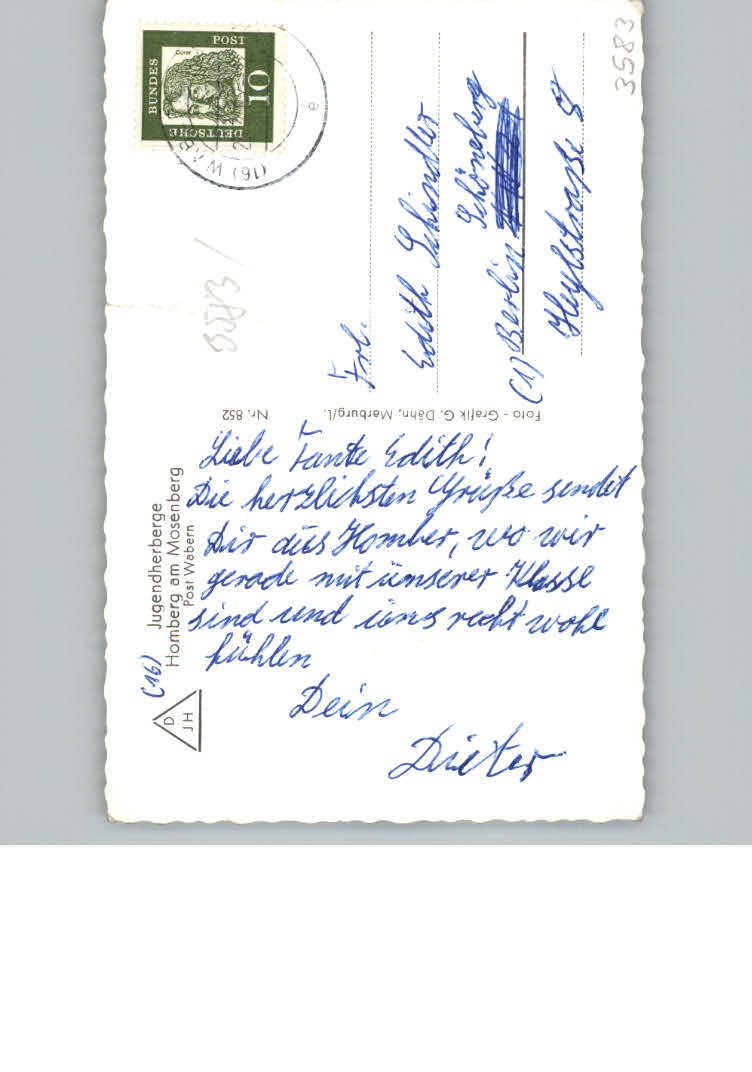 DEUTSCHE
BUNDES
POST
10
Dürer
(16) WAB
a
3583
3583/
Frl.
Edith Schindler
(1) Berlin Schöneberg
Heylstraße
Foto - Grafik G. Dähn, Marburg/L. Nr. 852
(16) Jugendherberge
Homberg am Mosenberg
Post Wabern
D
JH
Liebe Tante Edith!
Die herzlichsten Grüße sendet
Dir aus Homber, wo wir
gerade mit unserer Klasse
sind und uns recht wohl
fühlen
Dein
Dieter